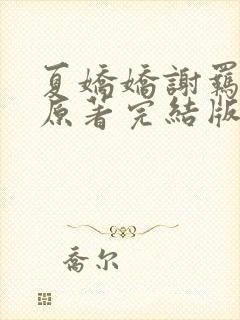 夏嬌嬌謝羁
原著完結版
喬尔